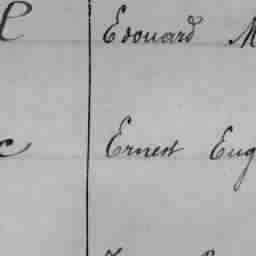 Edouard M
Ernest Eug